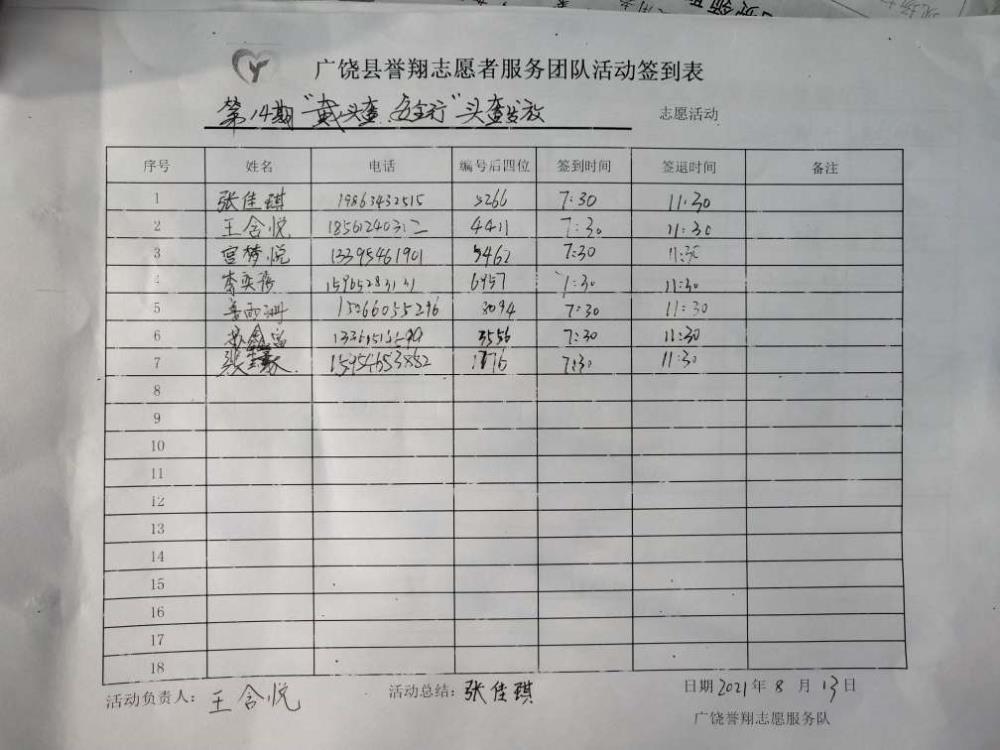 广饶县誉翔志愿者服务团队活动签到表
第14期"戴头盔 安全行"头盔发放 志愿活动
序号 姓名 电话 编号后四位 签到时间 签退时间 备注
1 张佳琪 19863432515 3266 7:30 11:30
2 王含悦 4411 7:30 11:30
3 宫梦悦 13395461901 5462 7:30 11:30
4 15965283131 6957 7:30 11:30
5 15066055296 8094 7:30 11:30
6 3556 7:30 11:30
7 15954653852 7:30 11:30
8
9
10
11
12
13
14
15
16
17
18
活动负责人：王含悦 活动总结：张佳琪 日期2021年8月13日
广饶誉翔志愿服务队